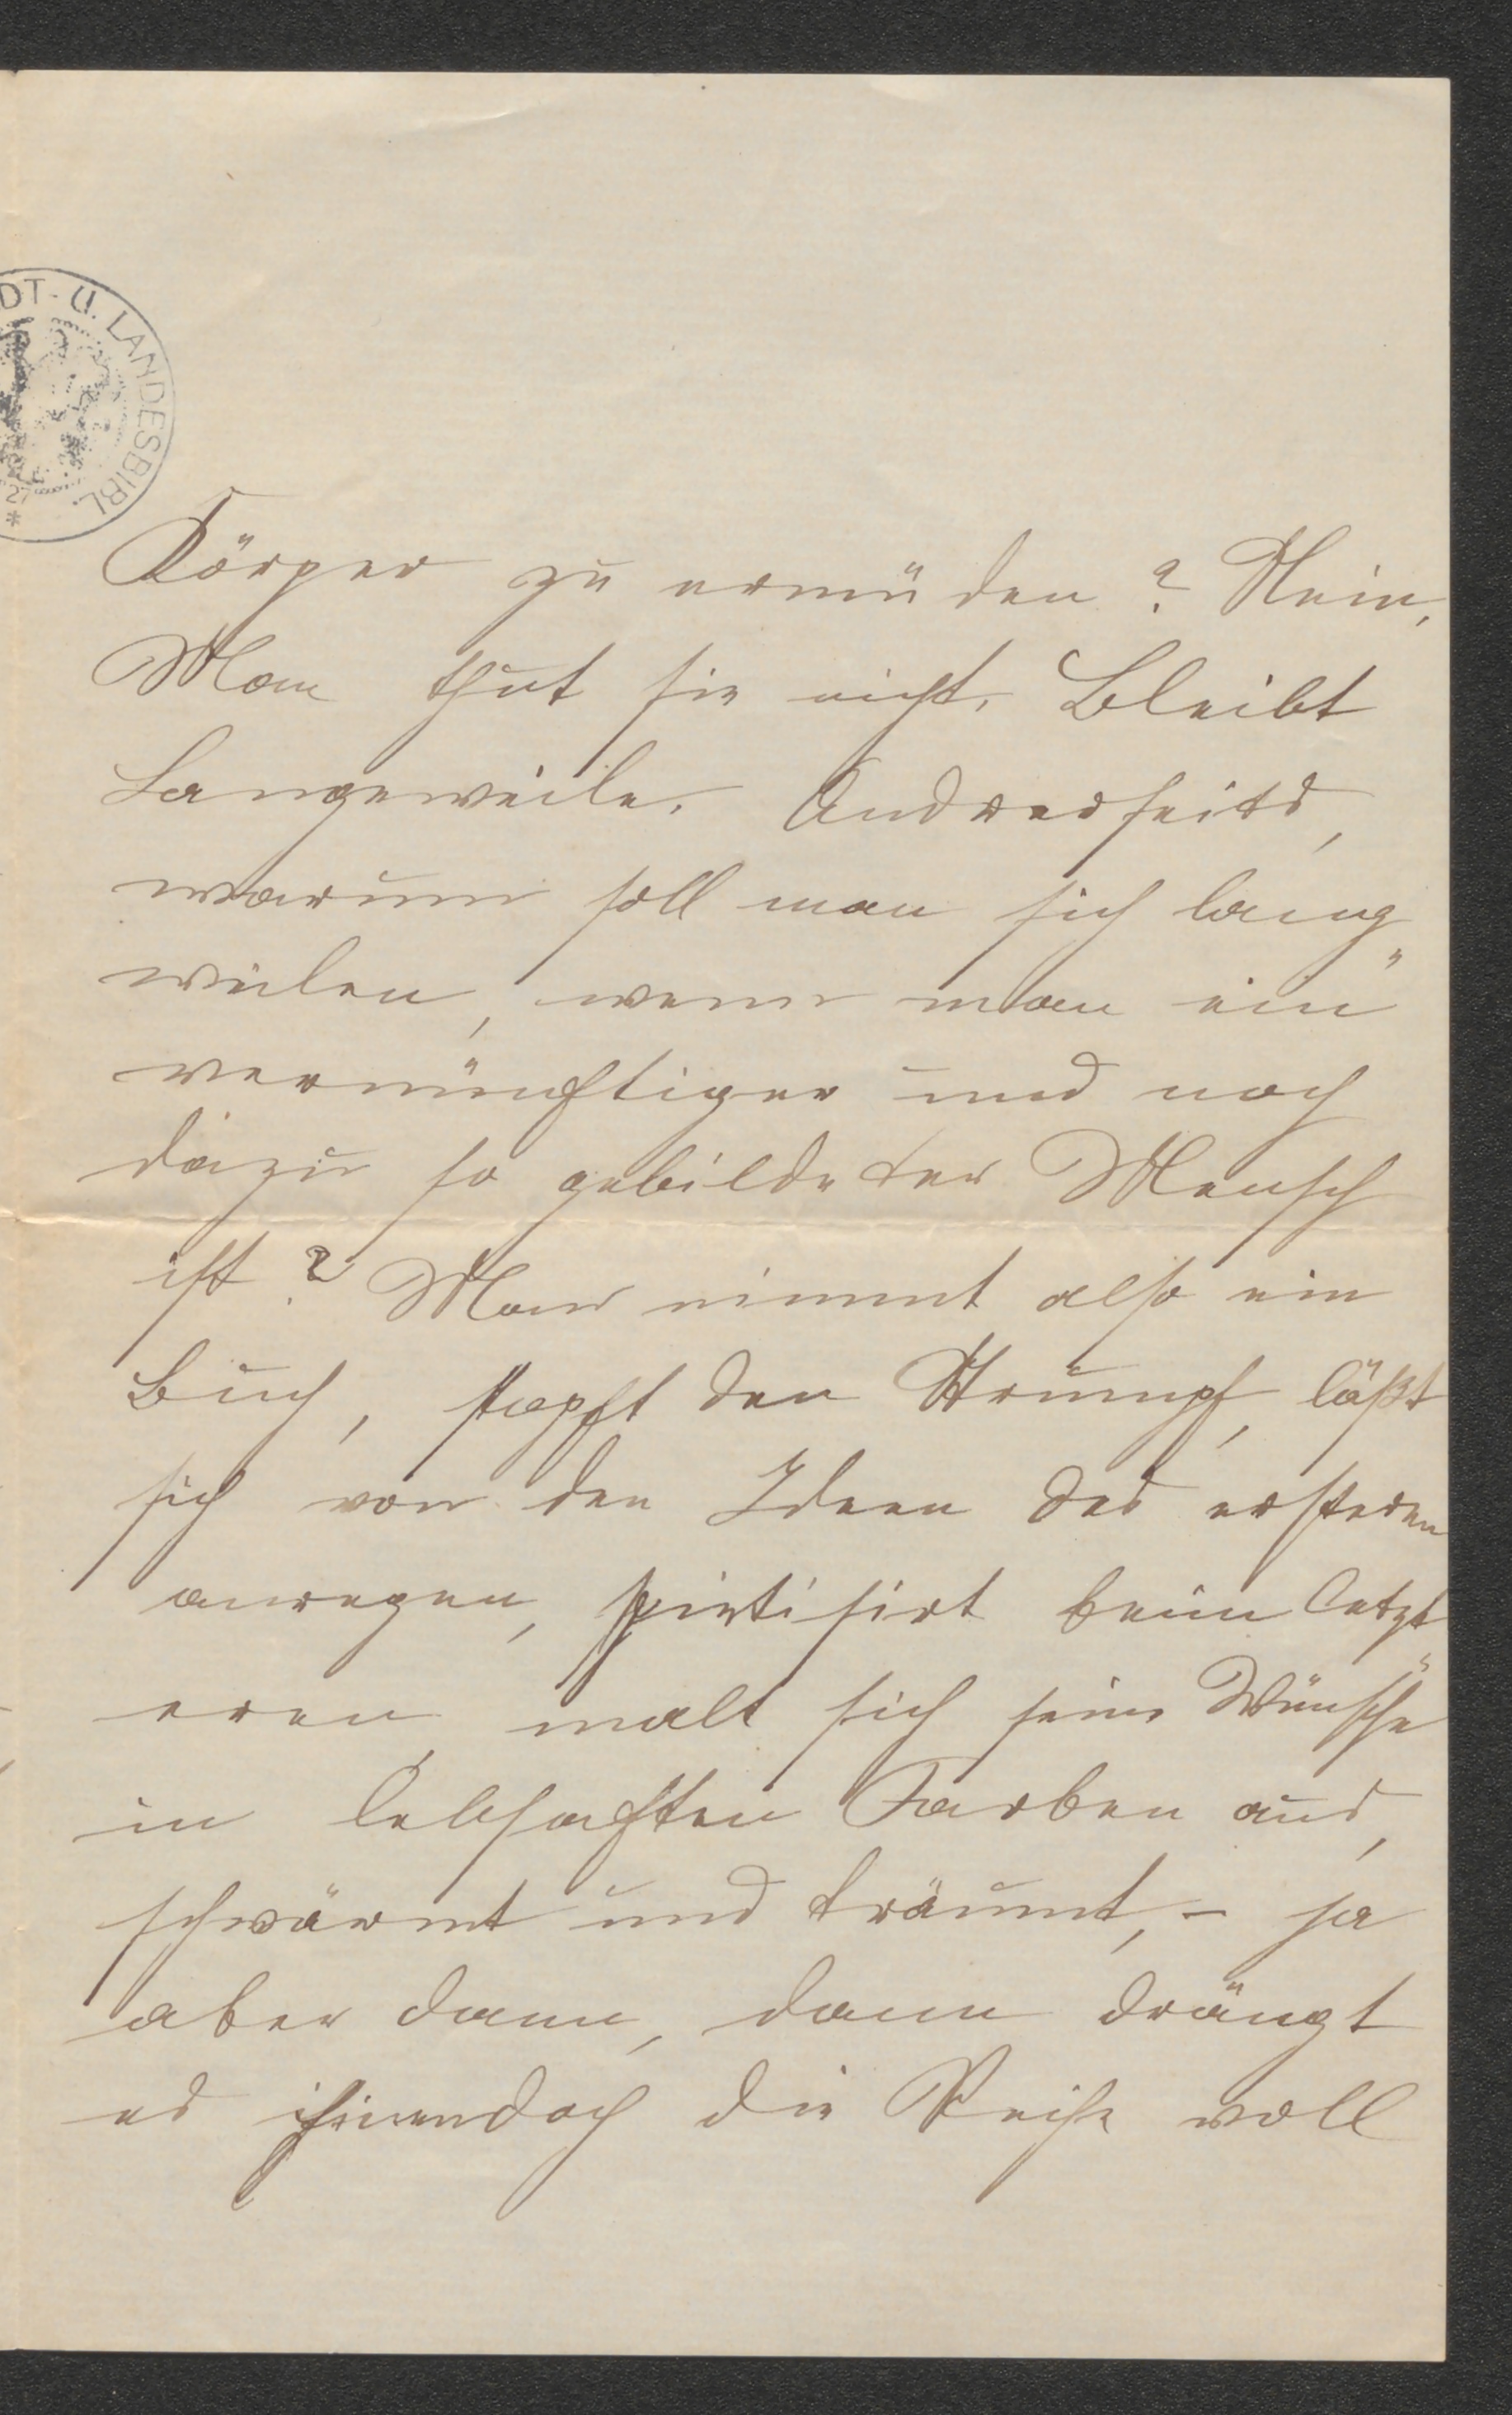 DT- U. LANDESBIBL.
27
*
Körper zu ermüden? Nein,
Man thut sie nicht. Bleibt
Langeweile. Andrerseits,
warum soll man sich lang-
weilen, wenn man ein
vernünftiger und noch
dazu so gebildeter Mensch
ist? Man nimmt also ein
Buch, stopft den Strumpf, läßt
sich von den Ideen des ersteren
anregen, spintisirt beim letzt-
eren, malt sich seine Wünsche
in lebhaften Farben aus,
schwärmt und träumt, – ja
aber dann, dann drängt
es doch die Reise voll